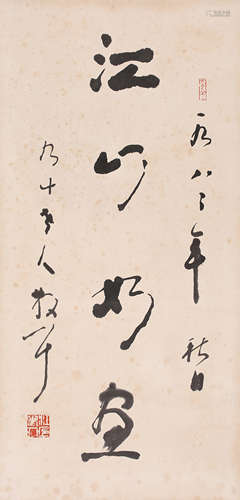 一九八三年秋日
江山如画
九十老人散耳